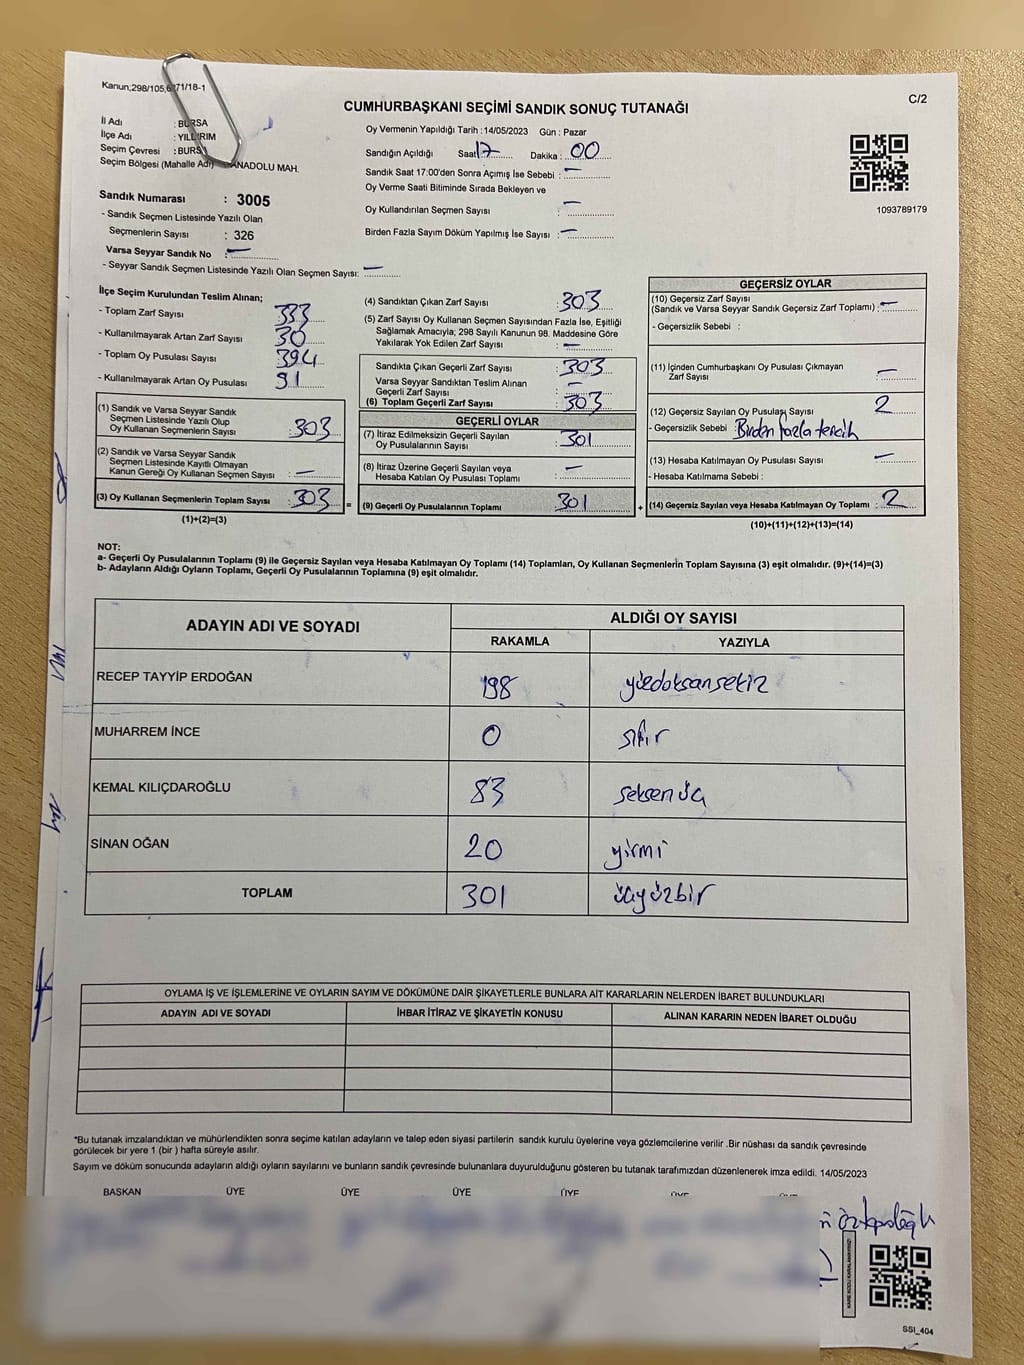 Kanun,298/105,6 71/18-1
C/2
CUMHURBAŞKANI SEÇİMİ SANDIK SONUÇ TUTANAĞI
İl Adı : BURSA
İlçe Adı : YILDIRIM
Seçim Çevresi : BURSA
Seçim Bölgesi (Mahalle Adı) ANADOLU MAH.
Oy Vermenin Yapıldığı Tarih : 14/05/2023 Gün : Pazar
Sandığın Açıldığı Saat 17 Dakika : 00
Sandık Saat 17:00'den Sonra Açımış İse Sebebi : —
Oy Verme Saati Bitiminde Sırada Bekleyen ve
Oy Kullandırılan Seçmen Sayısı : —
Birden Fazla Sayım Döküm Yapılmış İse Sayısı : —
1093789179
Sandık Numarası : 3005
- Sandık Seçmen Listesinde Yazılı Olan
Seçmenlerin Sayısı : 326
Varsa Seyyar Sandık No : —
- Seyyar Sandık Seçmen Listesinde Yazılı Olan Seçmen Sayısı: —
İlçe Seçim Kurulundan Teslim Alınan;
- Toplam Zarf Sayısı : 333
- Kullanılmayarak Artan Zarf Sayısı : 30
- Toplam Oy Pusulası Sayısı : 394
- Kullanılmayarak Artan Oy Pusulası : 91
(1) Sandık ve Varsa Seyyar Sandık
Seçmen Listesinde Yazılı Olup
Oy Kullanan Seçmenlerin Sayısı : 303
(2) Sandık ve Varsa Seyyar Sandık
Seçmen Listesinde Kayıtlı Olmayan
Kanun Gereği Oy Kullanan Seçmen Sayısı : —
(3) Oy Kullanan Seçmenlerin Toplam Sayısı : 303 =
(1)+(2)=(3)
(4) Sandıktan Çıkan Zarf Sayısı : 303
(5) Zarf Sayısı Oy Kullanan Seçmen Sayısından Fazla İse, Eşitliği
Sağlamak Amacıyla; 298 Sayılı Kanunun 98. Maddesine Göre
Yakılarak Yok Edilen Zarf Sayısı : —
Sandıkta Çıkan Geçerli Zarf Sayısı : 303
Varsa Seyyar Sandıktan Teslim Alınan
Geçerli Zarf Sayısı : —
(6) Toplam Geçerli Zarf Sayısı : 303
GEÇERLİ OYLAR
(7) İtiraz Edilmeksizin Geçerli Sayılan
Oy Pusulalarının Sayısı : 301
(8) İtiraz Üzerine Geçerli Sayılan veya
Hesaba Katılan Oy Pusulası Toplamı : —
(9) Geçerli Oy Pusulalarının Toplamı : 301 +
GEÇERSİZ OYLAR
(10) Geçersiz Zarf Sayısı
(Sandık ve Varsa Seyyar Sandık Geçersiz Zarf Toplamı) : —
- Geçersizlik Sebebi :
(11) İçinden Cumhurbaşkanı Oy Pusulası Çıkmayan
Zarf Sayısı : —
(12) Geçersiz Sayılan Oy Pusulası Sayısı : 2
- Geçersizlik Sebebi : Birden fazla tercih
(13) Hesaba Katılmayan Oy Pusulası Sayısı : —
- Hesaba Katılmama Sebebi :
(14) Geçersiz Sayılan veya Hesaba Katılmayan Oy Toplamı : 2
(10)+(11)+(12)+(13)=(14)
NOT:
a- Geçerli Oy Pusulalarının Toplamı (9) ile Geçersiz Sayılan veya Hesaba Katılmayan Oy Toplamı (14) Toplamları, Oy Kullanan Seçmenlerin Toplam Sayısına (3) eşit olmalıdır. (9)+(14)=(3)
b- Adayların Aldığı Oyların Toplamı, Geçerli Oy Pusulalarının Toplamına (9) eşit olmalıdır.
ADAYIN ADI VE SOYADI ALDIĞI OY SAYISI
RAKAMLA YAZIYLA
RECEP TAYYİP ERDOĞAN 198 yüzdoksansekiz
MUHARREM İNCE 0 sıfır
KEMAL KILIÇDAROĞLU 83 seksenüç
SİNAN OĞAN 20 yirmi
TOPLAM 301 üçyüzbir
OYLAMA İŞ VE İŞLEMLERİNE VE OYLARIN SAYIM VE DÖKÜMÜNE DAİR ŞİKAYETLERLE BUNLARA AİT KARARLARIN NELERDEN İBARET BULUNDUKLARI
ADAYIN ADI VE SOYADI İHBAR İTİRAZ VE ŞİKAYETİN KONUSU ALINAN KARARIN NEDEN İBARET OLDUĞU
*Bu tutanak imzalandıktan ve mühürlendikten sonra seçime katılan adayların ve talep eden siyasi partilerin sandık kurulu üyelerine veya gözlemcilerine verilir .Bir nüshası da sandık çevresinde
görülecek bir yere 1 (bir ) hafta süreyle asılır.
Sayım ve döküm sonucunda adayların aldığı oyların sayılarını ve bunların sandık çevresinde bulunanlara duyurulduğunu gösteren bu tutanak tarafımızdan düzenlenerek imza edildi. 14/05/2023
BAŞKAN ÜYE ÜYE ÜYE ÜYE ÜYE ÜYE
KARE KODU KARALAMAYINIZ!
SSI_404